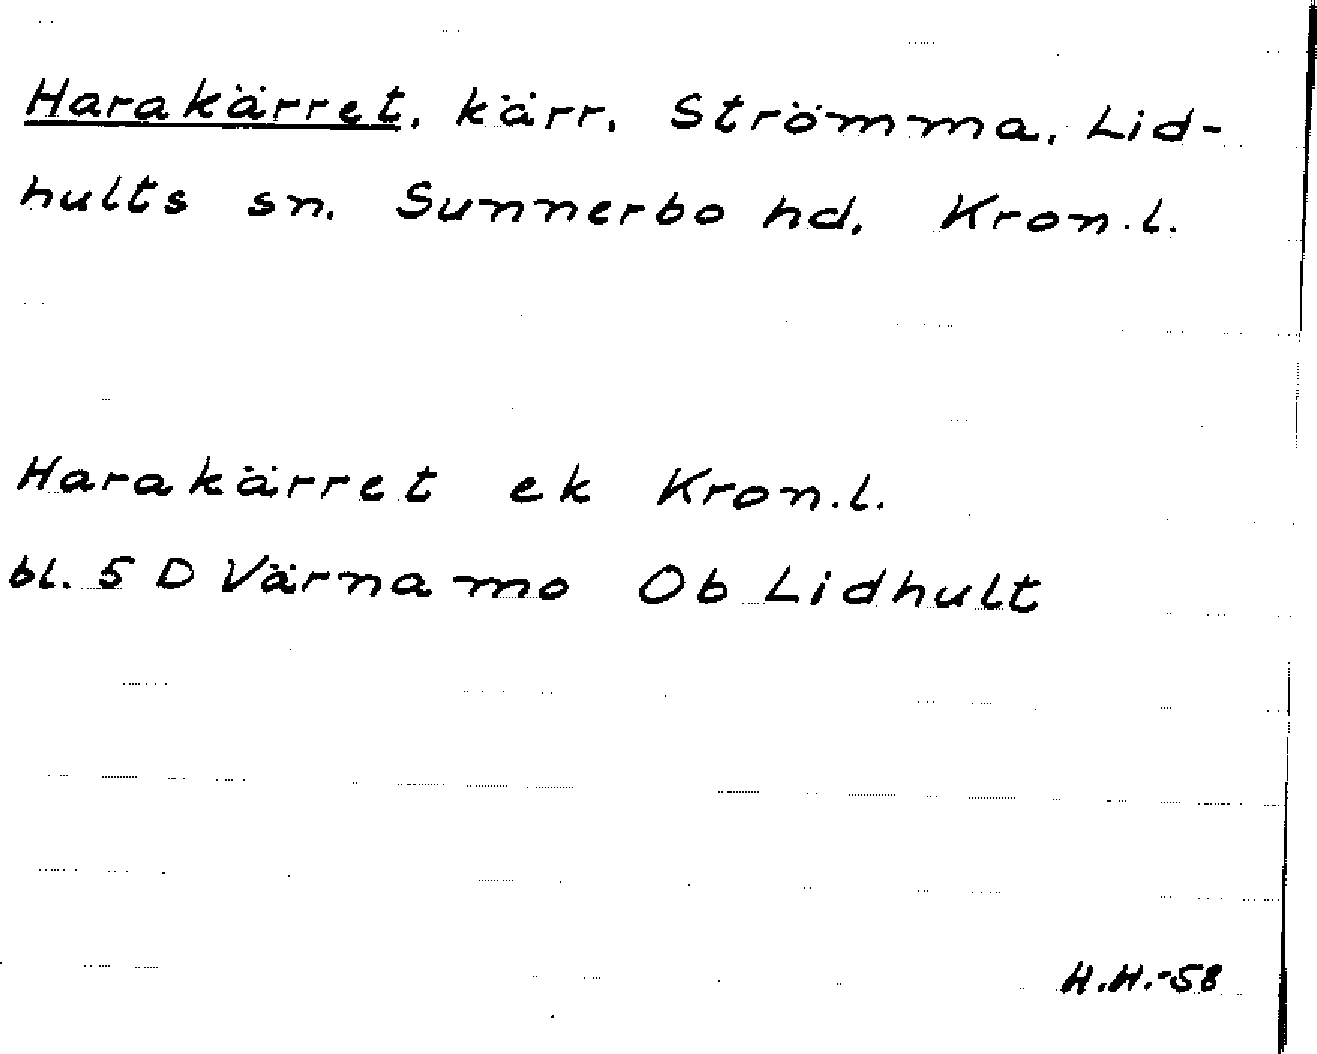 Harakärret, kärr, Strömma, Lid-
hults sn. Sunnerbo hd. Kron.l.
Harakärret ek Kron.l.
bl. 5 D Värnamo Ob Lidhult
H.H.-58